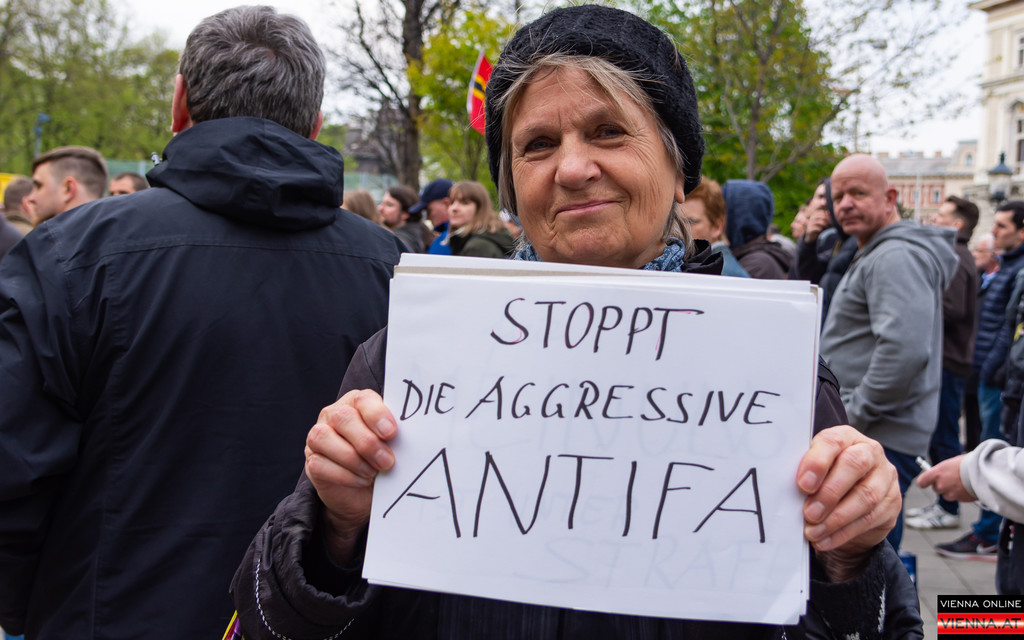 STOPPT
DIE AGGRESSIVE
ANTIFA
VIENNA ONLINE
VIENNA.AT